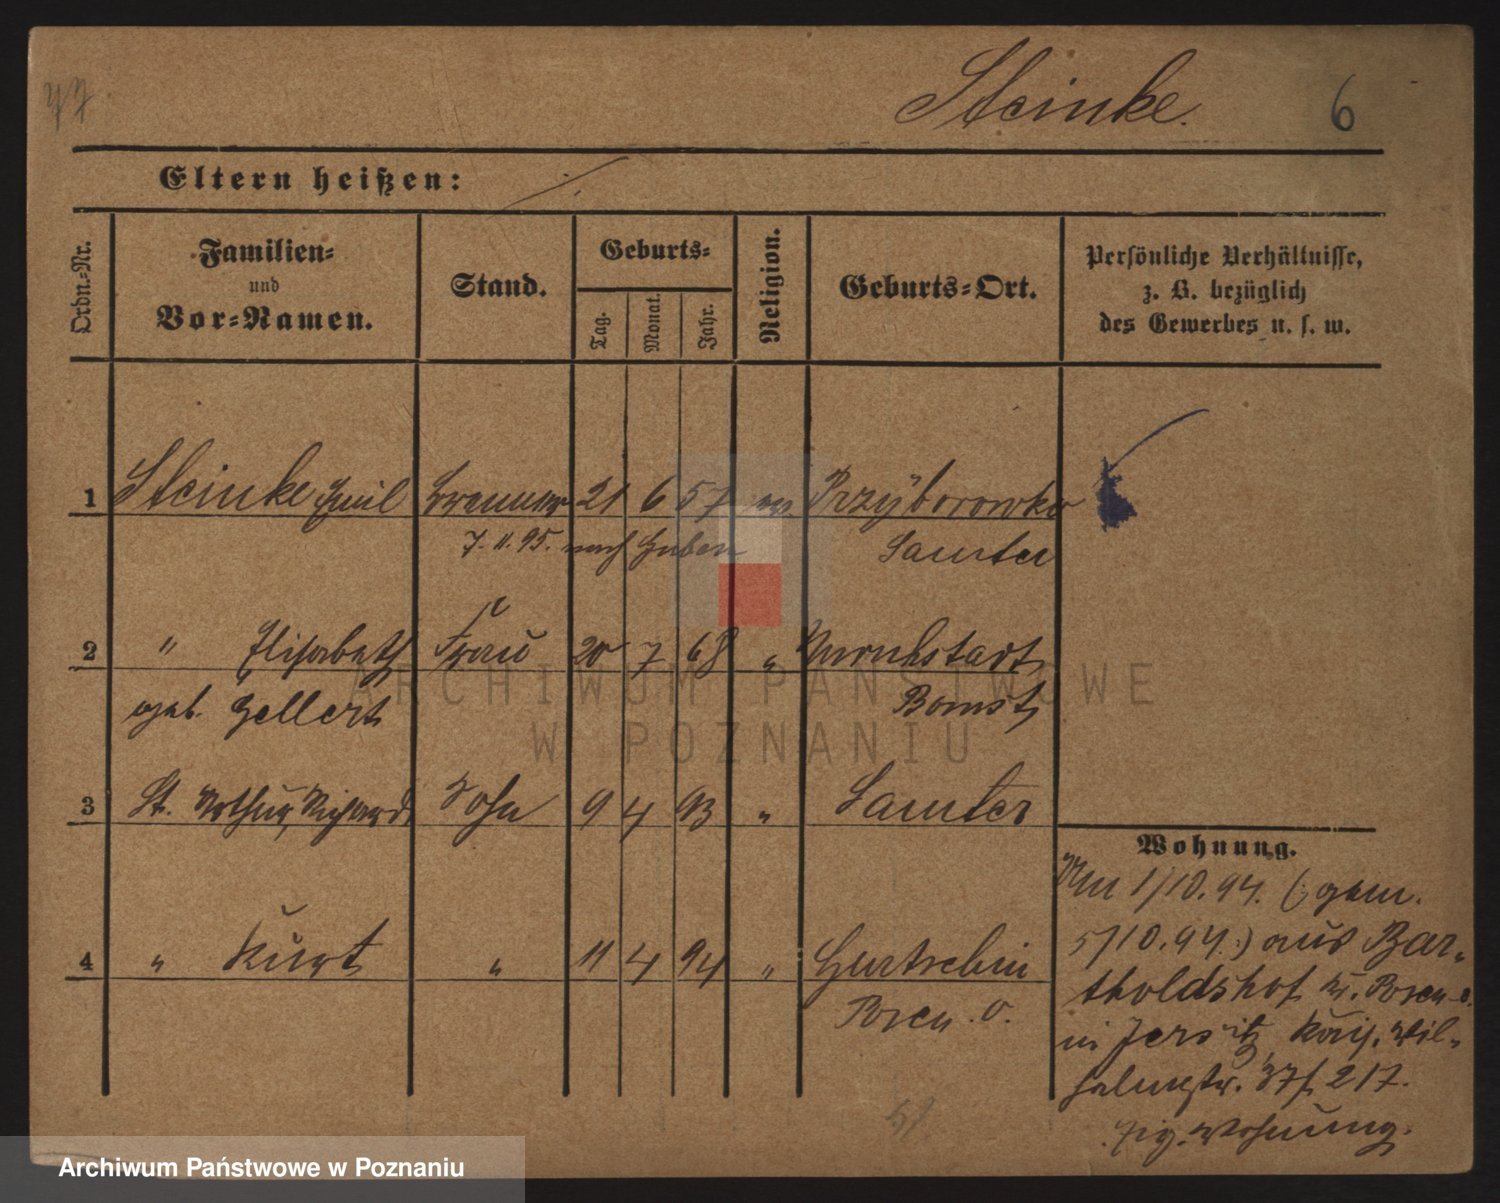 Steinke. 6
Eltern heißen:
Ordn.-Nr.
Familien-
und
Vor-Namen.
Stand.
Geburts-
Tag.
Monat.
Jahr.
Religion.
Geburts-Ort.
Persönliche Verhältnisse,
z. B. bezüglich
des Gewerbes u. s. w.
1 Steinke Emil 21 6 57 ev. Przÿborowko
7.11.95. nach Guben Samter
2 " Elisabeth Frau 20 7 68 "
geb. Gellert Bomst
3 St. Arthur, Richard Sohn 9 4 93 " Samter
4 " Kurt " 11 4 94 "
Posen. O.
Wohnung.
1/10.94. (gem.
5/10.94.) aus Bar-
tholdshof Kr. Posen-O.
in Jersitz, Kais. Wil-
helmstr. 37
Wohnung.
ARCHIWUM PAŃSTWOWE
W POZNANIU
Archiwum Państwowe w Poznaniu